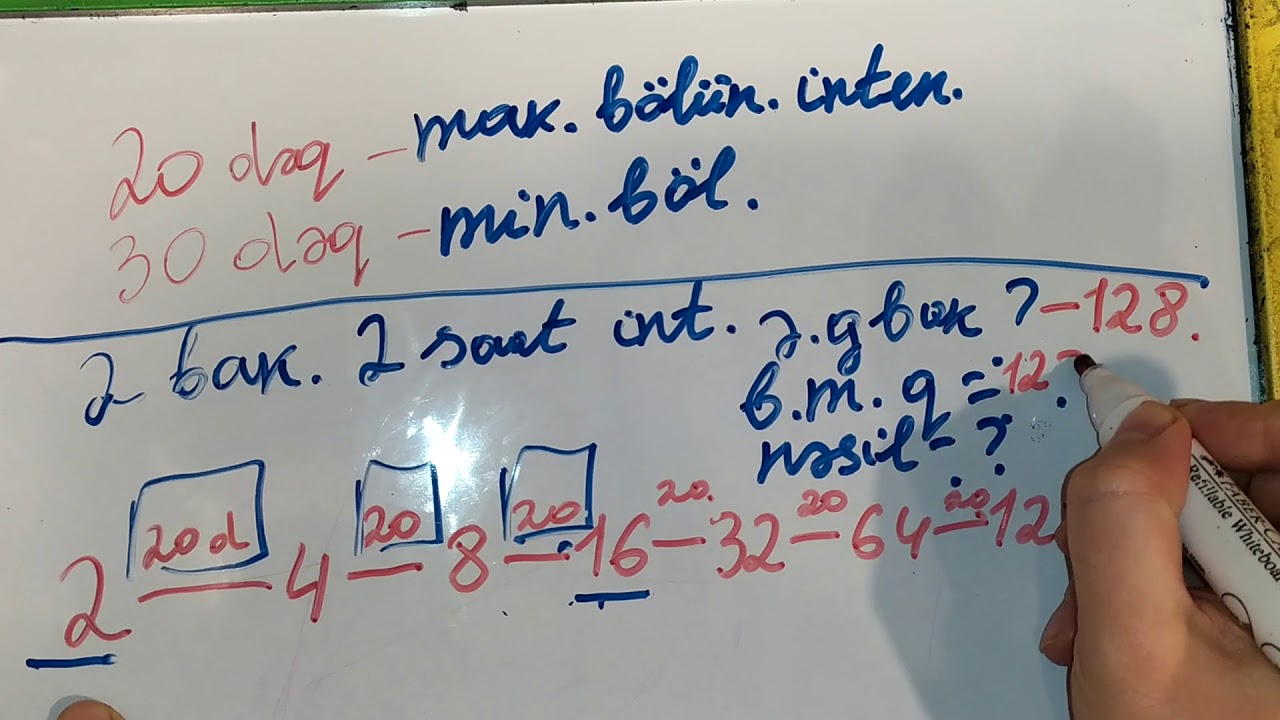 20 dəq - mak. bölün. inten.
30 dəq - min. böl.
2 bak. 2 saat int. ə.g bak ? - 128.
b.m. q = 12
nəsil - ?
2 20 d 4 20 8 20 16 20. 32 20 64 20 12
Refillable Whiteboa